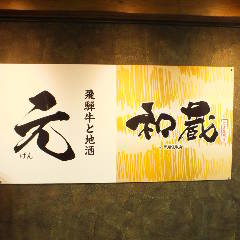 飛騨牛と地酒
元
げん
和蔵